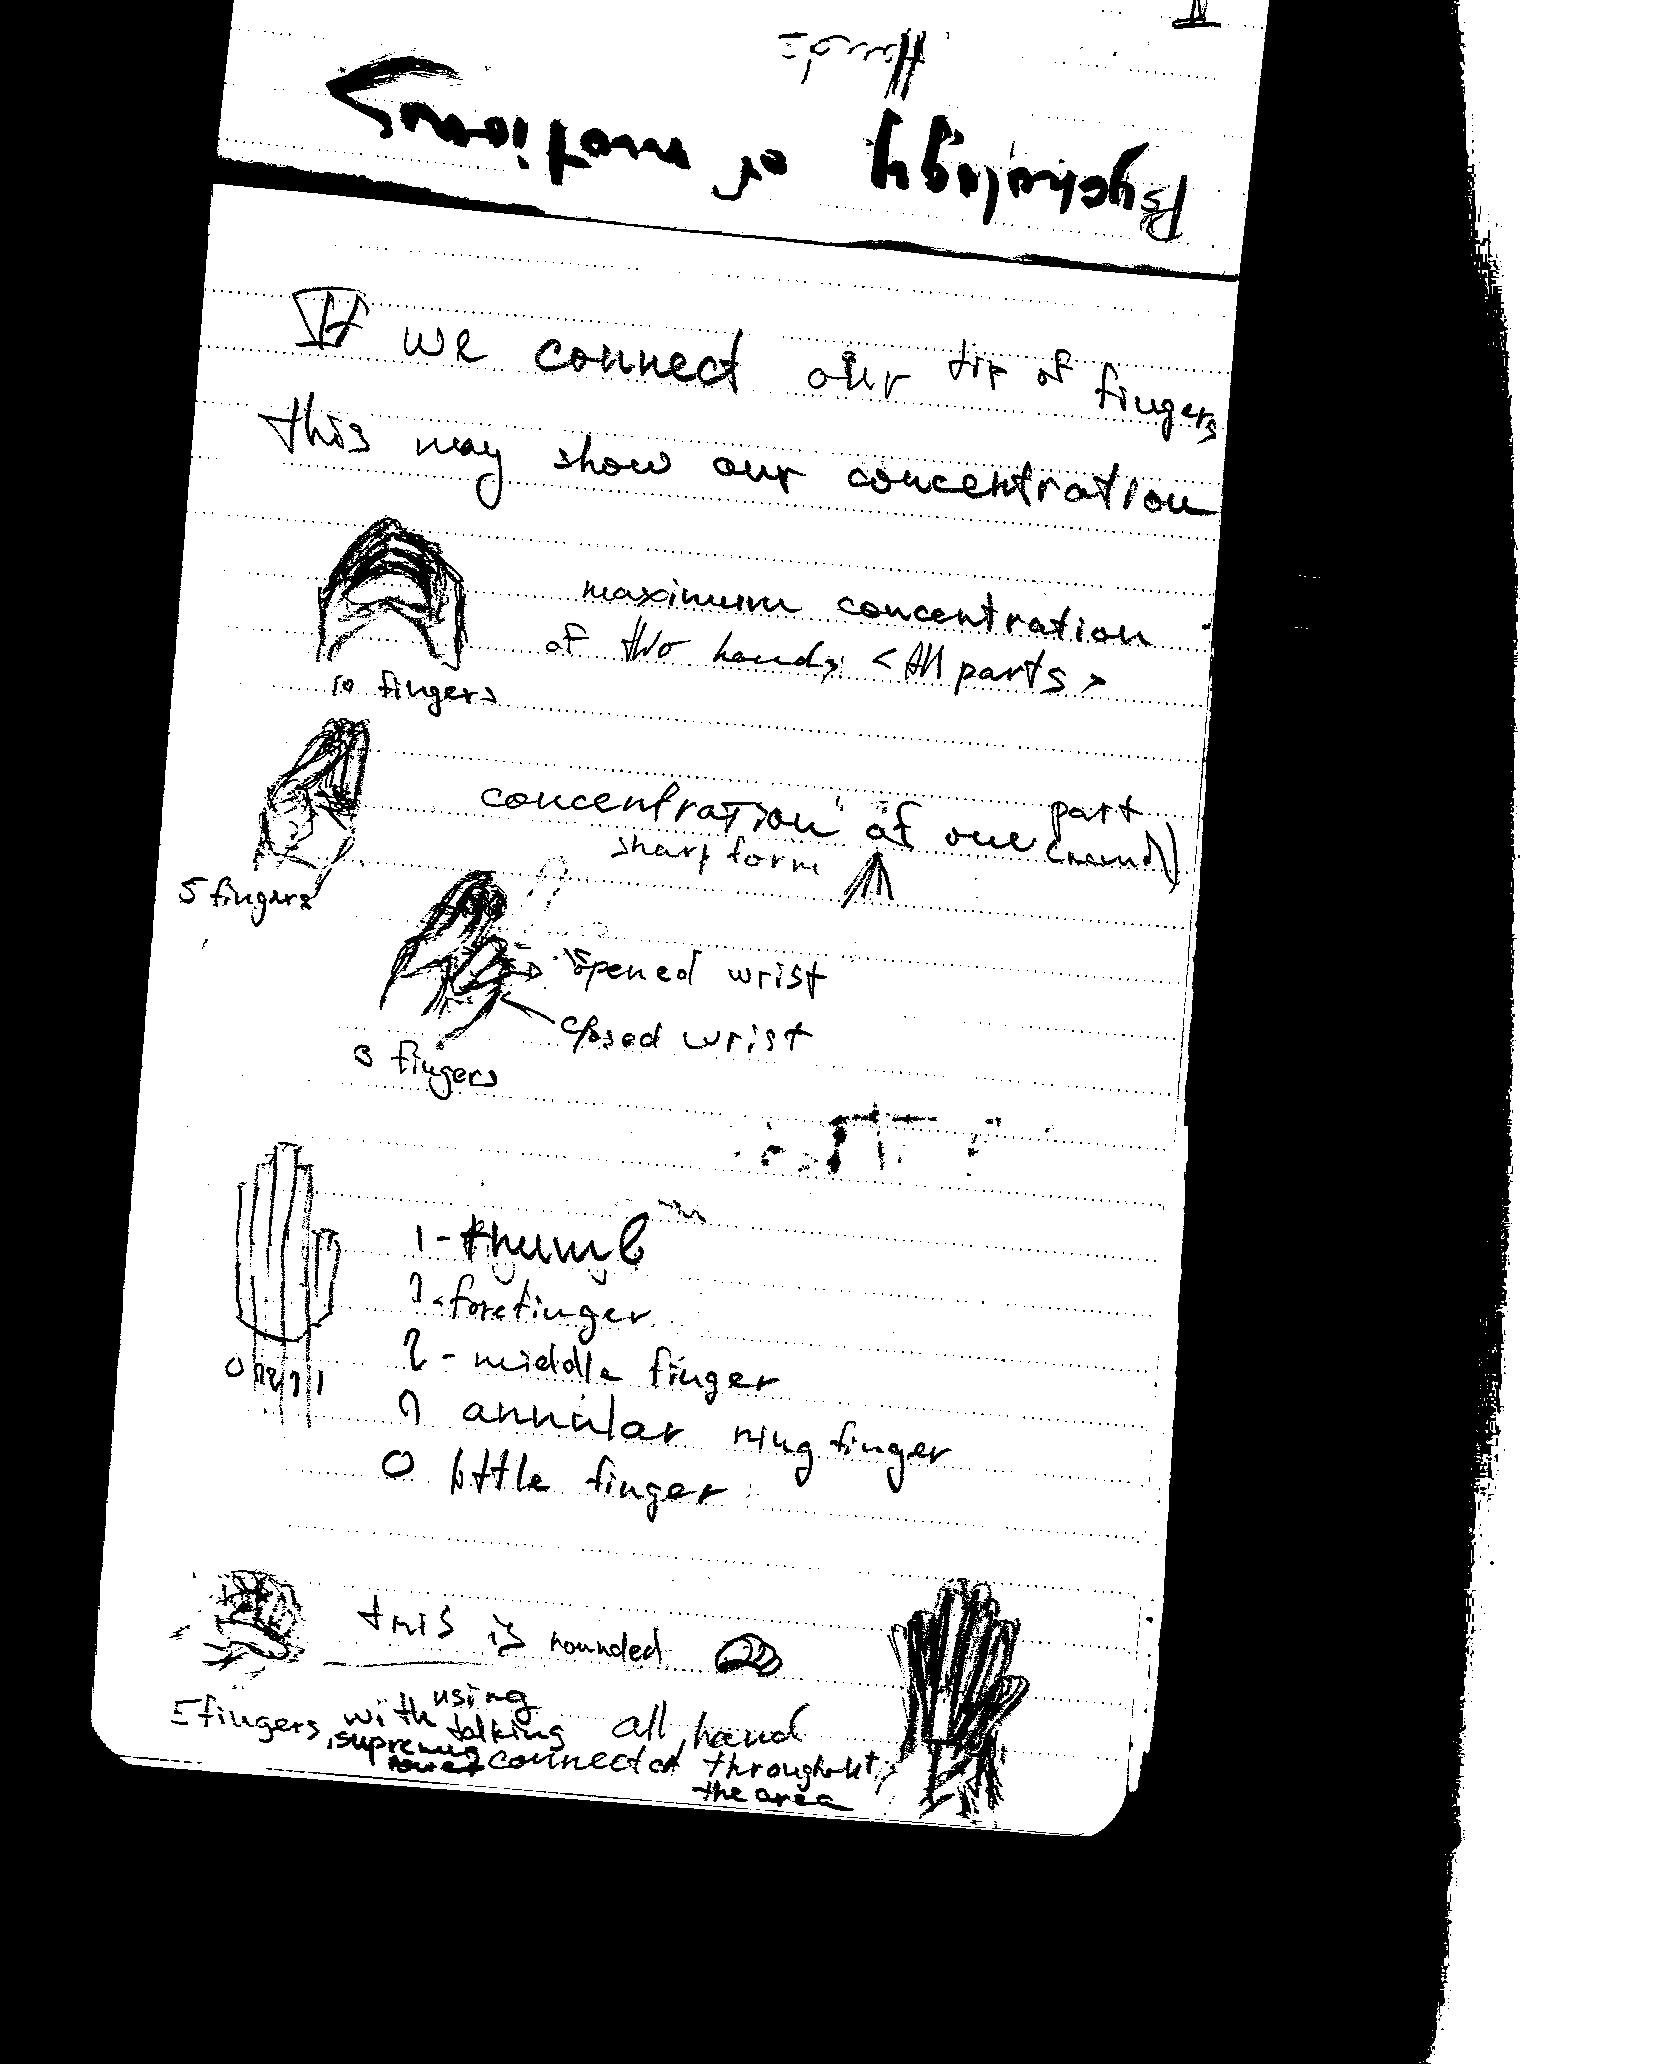 Psychology of motions
Hands
If we connect our tip of fingers
this may show our concentration
maximum concentration
of two hands <All parts>
10 fingers
concentration of one part (hand)
sharp form
5 fingers
opened wrist
closed wrist
3 fingers
1 - thumb
1 - forefinger
2 - middle finger
1 annular ring finger
0 little finger
this is rounded
5 fingers with using talking all hand
supreme power connected throughout
the area